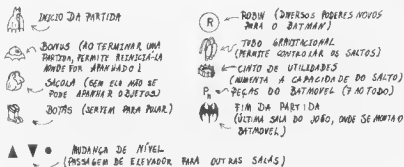 INICIO DA PARTIDA
BONUS (AO TERMINAR UMA
PARTIDA, PERMITE REINICIÁ-LA
AONDE FOR APANHADO)
SACOLA (SEM ELA NÃO SE
PODE APANHAR OBJETOS)
BOTAS (SERVEM PARA PULAR)
MUDANÇA DE NÍVEL
(PASSAGEM DE ELEVADOR PARA OUTRAS SALAS)
R
ROBIN (DIVERSOS PODERES NOVOS
PARA O BATMAN)
TUBO GRAVITACIONAL
(PERMITE CONTROLAR OS SALTOS)
CINTO DE UTILIDADES
(AUMENTA A CAPACIDADE DO SALTO)
PEÇAS DO BATMOVEL (7 NO TODO)
FIM DA PARTIDA
(ÚLTIMA SALA DO JOGO, ONDE SE MONTA O
BATMOVEL)